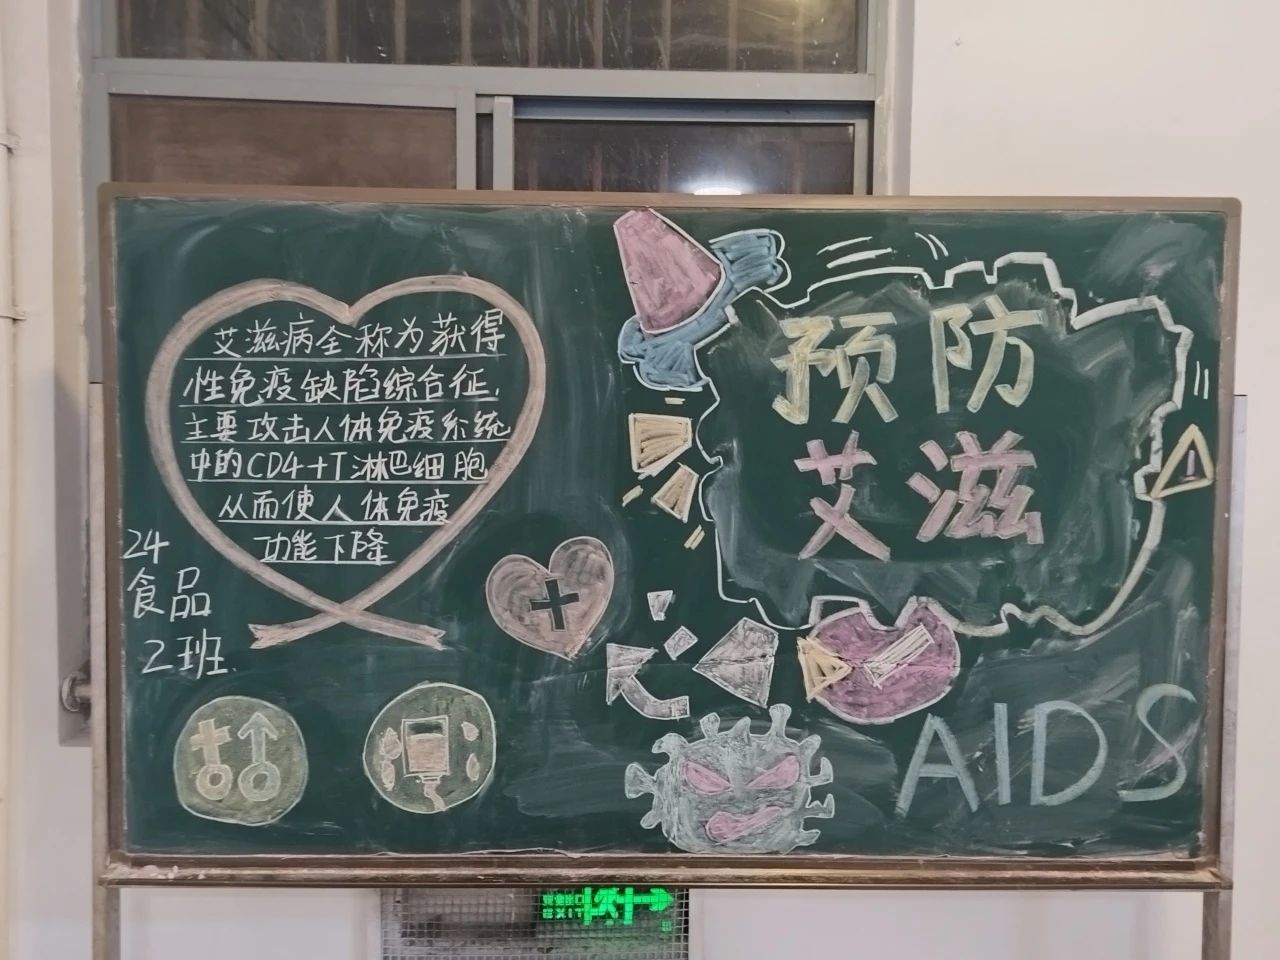 艾滋病全称为获得
性免疫缺陷综合征,
主要攻击人体免疫系统
中的CD4+T淋巴细胞
从而使人体免疫
功能下降
24
食品
2班.
预防
艾滋
AIDS
安全出口
EXIT